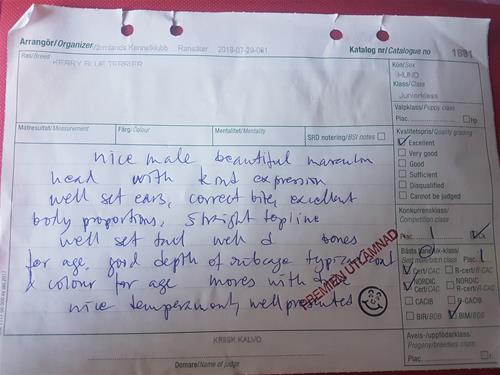 Arrangör/Organizer Jämtlands Kennelklubb Ransäter 2018-07-29-061
Katalog nr/Catalogue no 1881
Ras/Breed
KERRY BLUE TERRIER
Kön/Sex
HUND
Klass/Class
Juniorklass
Valpklass/Puppy class
Plac. Hp
Mätresultat/Measurement Färg/Colour Mentalitet/Mentality SRD notering/BSI notes
Kvalitetspris/Quality grading
Excellent
Very good
Good
Sufficient
Disqualified
Cannot be judged
nice male beautiful masculin
head with kind expression
well set ears, correct bite, excellent
body proportions, straight topline
well set tail well bones
for age, good depth of ribcage typical coat
& colour for age moves with
nice temperament, well presented
PREMIEN UTLÄMNAD
Konkurrensklass/
Competition class
Plac. 1 CK
Bästa
Best male/bitch class
Plac. 1
Cert/CAC R-cert/R-CAC
NORDIC Cert/CAC NORDIC R-cert/CAC
CACIB R-CACIB
BIR/BOB BIM/BOS
Avels-/uppfödarklass/
Progeny/breeders class
Plac.
Domare/Name of judge